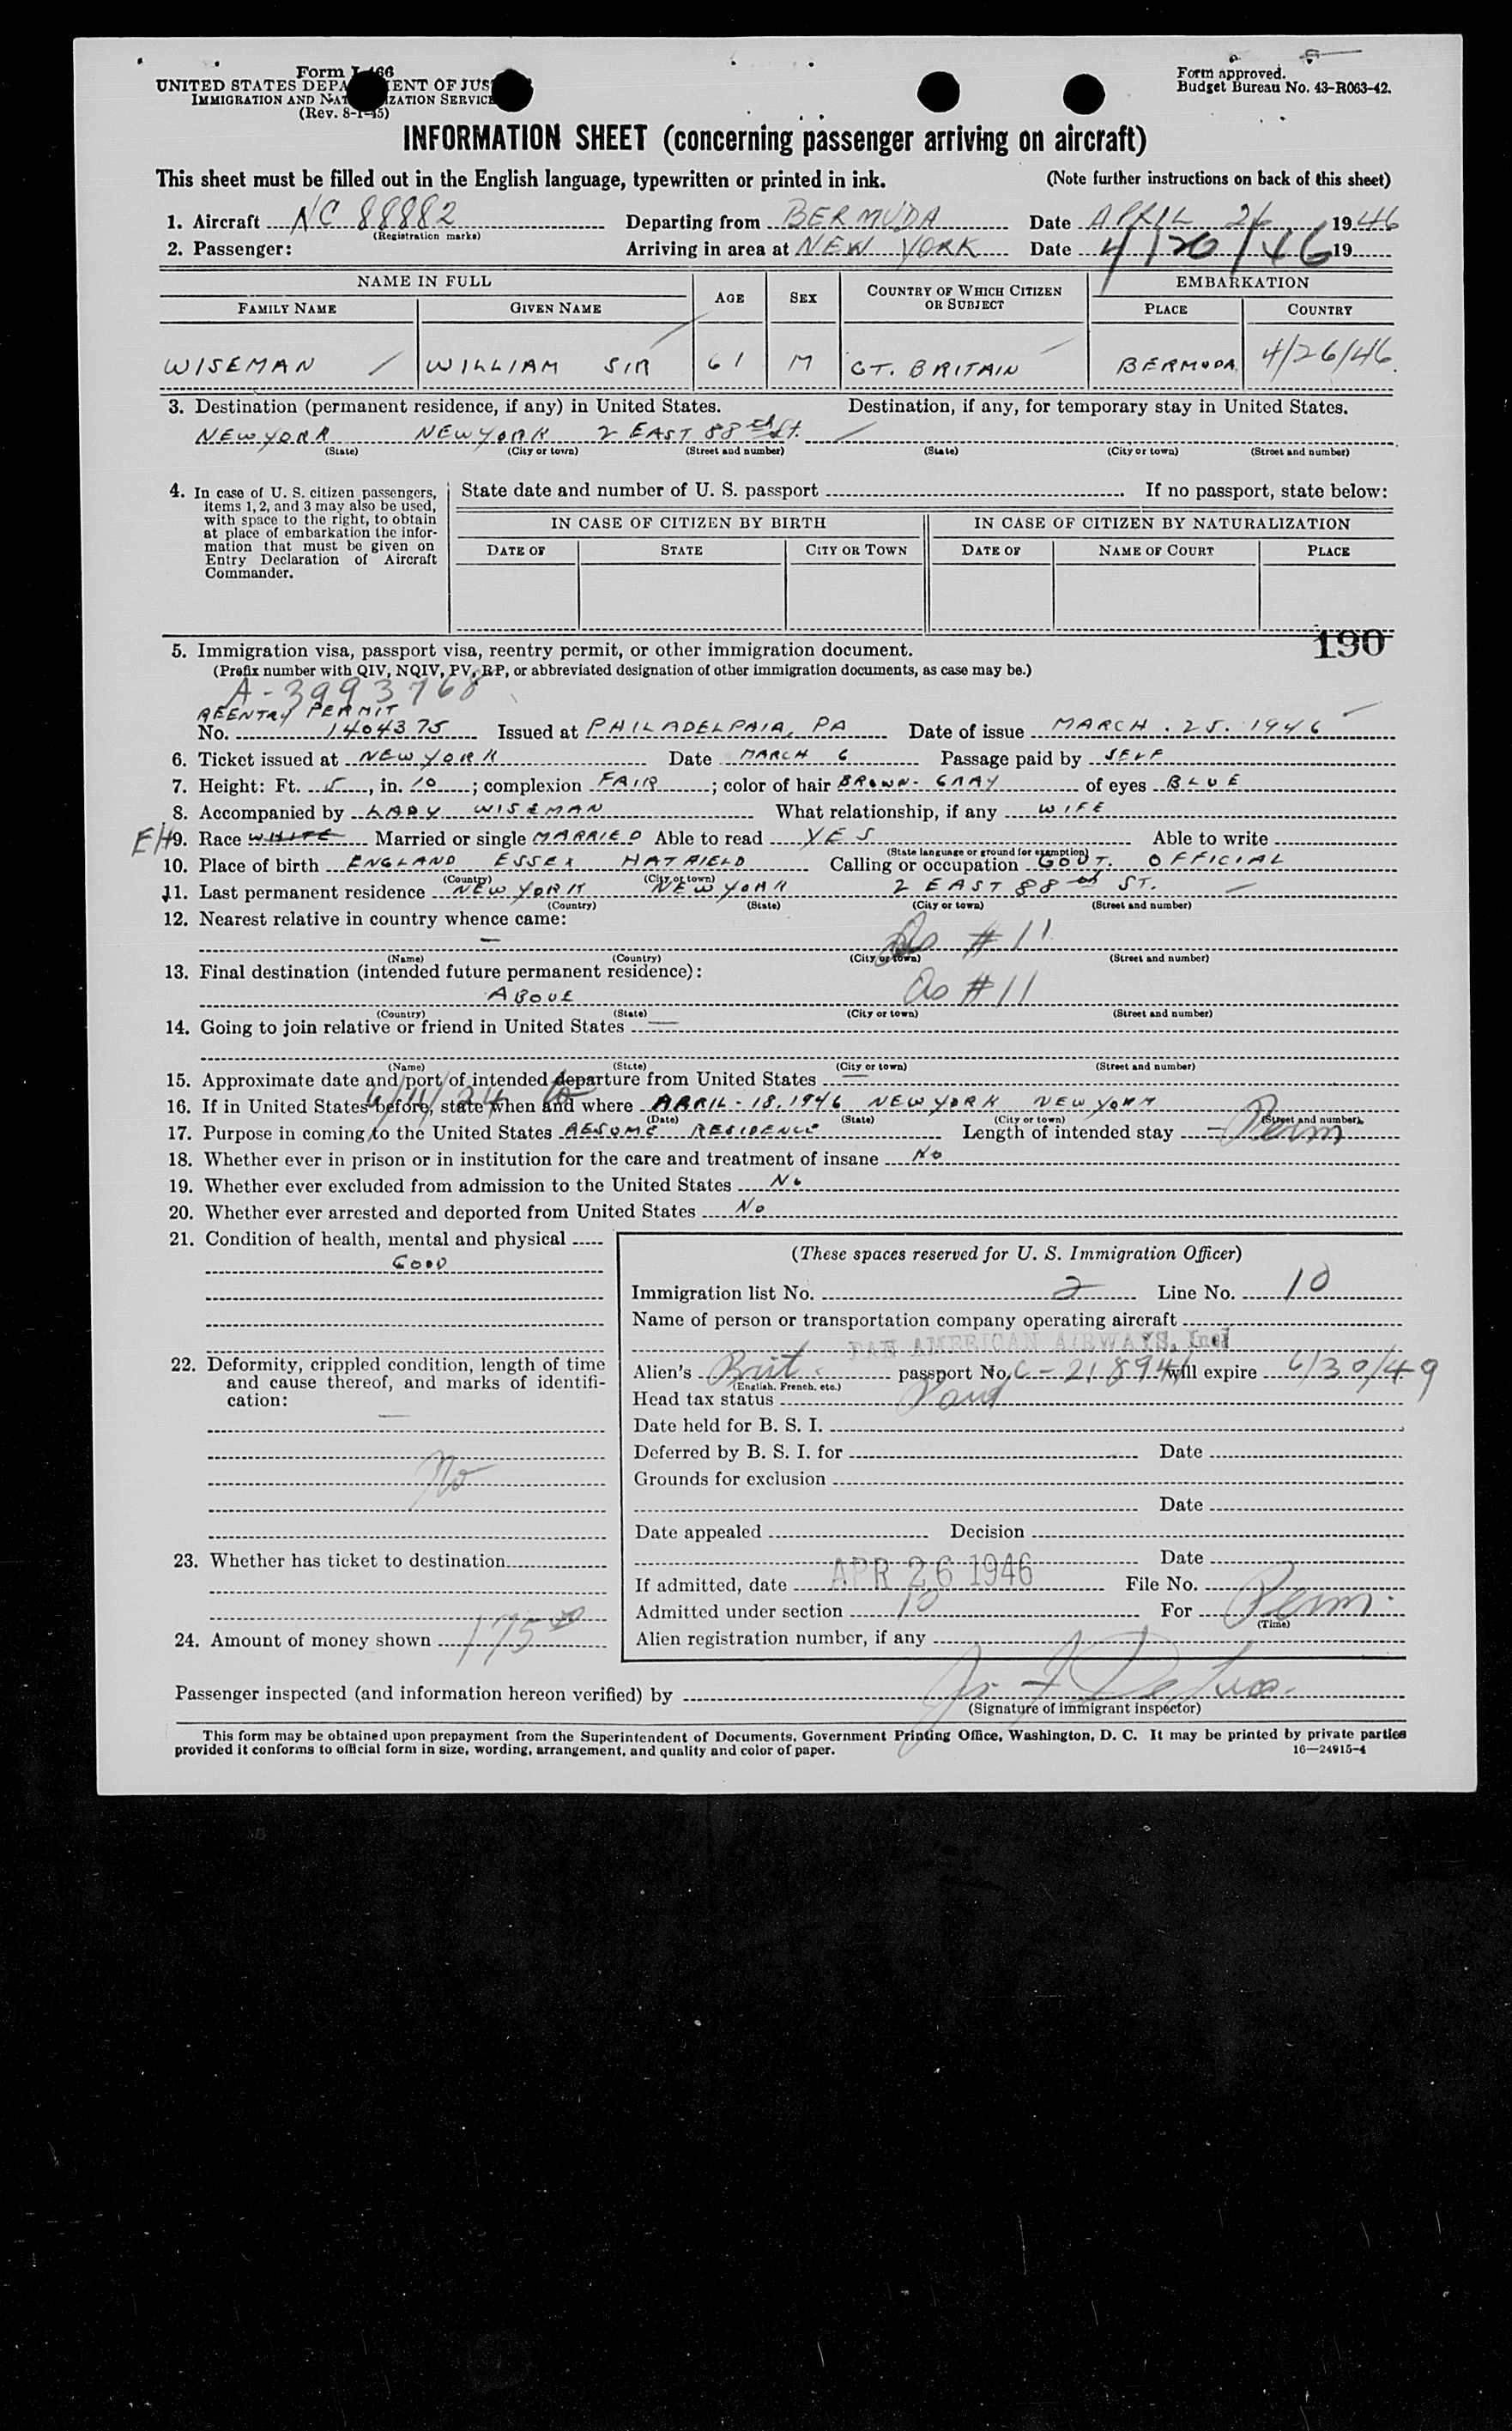 Form I-466
UNITED STATES DEPARTMENT OF JUSTICE
IMMIGRATION AND NATURALIZATION SERVICE
(Rev. 8-1-45)
Form approved.
Budget Bureau No. 43-R063-42.
INFORMATION SHEET (concerning passenger arriving on aircraft)
This sheet must be filled out in the English language, typewritten or printed in ink. (Note further instructions on back of this sheet)
1. Aircraft NC 88882 Departing from BERMUDA Date APRIL 26 1946
(Registration marks)
2. Passenger: Arriving in area at NEW YORK Date 4/26/46 19
NAME IN FULL AGE SEX COUNTRY OF WHICH CITIZEN OR SUBJECT EMBARKATION
FAMILY NAME GIVEN NAME PLACE COUNTRY
WISEMAN WILLIAM SIR 61 M GT. BRITAIN BERMUDA 4/26/46
3. Destination (permanent residence, if any) in United States. Destination, if any, for temporary stay in United States.
NEW YORK NEW YORK 2 EAST 88th St.
(State) (City or town) (Street and number) (State) (City or town) (Street and number)
4. In case of U. S. citizen passengers, items 1, 2, and 3 may also be used, with space to the right, to obtain at place of embarkation the information that must be given on Entry Declaration of Aircraft Commander.
State date and number of U. S. passport . If no passport, state below:
IN CASE OF CITIZEN BY BIRTH IN CASE OF CITIZEN BY NATURALIZATION
DATE OF STATE CITY OR TOWN DATE OF NAME OF COURT PLACE
190
5. Immigration visa, passport visa, reentry permit, or other immigration document.
(Prefix number with QIV, NQIV, PV, RP, or abbreviated designation of other immigration documents, as case may be.)
A-3993768
REENTRY PERMIT
No. 1404375 Issued at PHILADELPHIA, PA Date of issue MARCH . 25. 1946
6. Ticket issued at NEW YORK Date MARCH 6 Passage paid by SELF
7. Height: Ft. 5, in. 10; complexion FAIR; color of hair BROWN-GRAY of eyes BLUE
8. Accompanied by LADY WISEMAN What relationship, if any WIFE
EH 9. Race WHITE Married or single MARRIED Able to read YES Able to write
(State language or ground for exemption)
10. Place of birth ENGLAND ESSEX HATFIELD Calling or occupation GOVT. OFFICIAL
(Country) (City or town)
11. Last permanent residence NEW YORK NEW YORK 2 EAST 88th ST.
(Country) (State) (City or town) (Street and number)
12. Nearest relative in country whence came:
— As #11
(Name) (Country) (City or town) (Street and number)
13. Final destination (intended future permanent residence):
ABOVE As #11
(Country) (State) (City or town) (Street and number)
14. Going to join relative or friend in United States —
(Name) (State) (City or town) (Street and number)
15. Approximate date and port of intended departure from United States —
16. If in United States before, state when and where APRIL-18.1946 NEW YORK NEW YORK
(Date) (State) (City or town) (Street and number)
17. Purpose in coming to the United States RESUME RESIDENCE Length of intended stay — Perm
18. Whether ever in prison or in institution for the care and treatment of insane No
19. Whether ever excluded from admission to the United States No
20. Whether ever arrested and deported from United States No
21. Condition of health, mental and physical
GOOD
22. Deformity, crippled condition, length of time and cause thereof, and marks of identification:
—
No
23. Whether has ticket to destination
24. Amount of money shown 175 00
(These spaces reserved for U. S. Immigration Officer)
Immigration list No. 2 Line No. 10
Name of person or transportation company operating aircraft
PAN AMERICAN AIRWAYS, Inc.
Alien's Brit. passport No. C-218941 will expire 6/30/49
(English, French, etc.)
Head tax status
Date held for B. S. I.
Deferred by B. S. I. for Date
Grounds for exclusion
Date
Date appealed Decision
Date
If admitted, date APR 26 1946 File No.
Admitted under section 10 For Perm.
(Time)
Alien registration number, if any
Passenger inspected (and information hereon verified) by
(Signature of immigrant inspector)
This form may be obtained upon prepayment from the Superintendent of Documents, Government Printing Office, Washington, D. C. It may be printed by private parties
provided it conforms to official form in size, wording, arrangement, and quality and color of paper. 16—24915-4